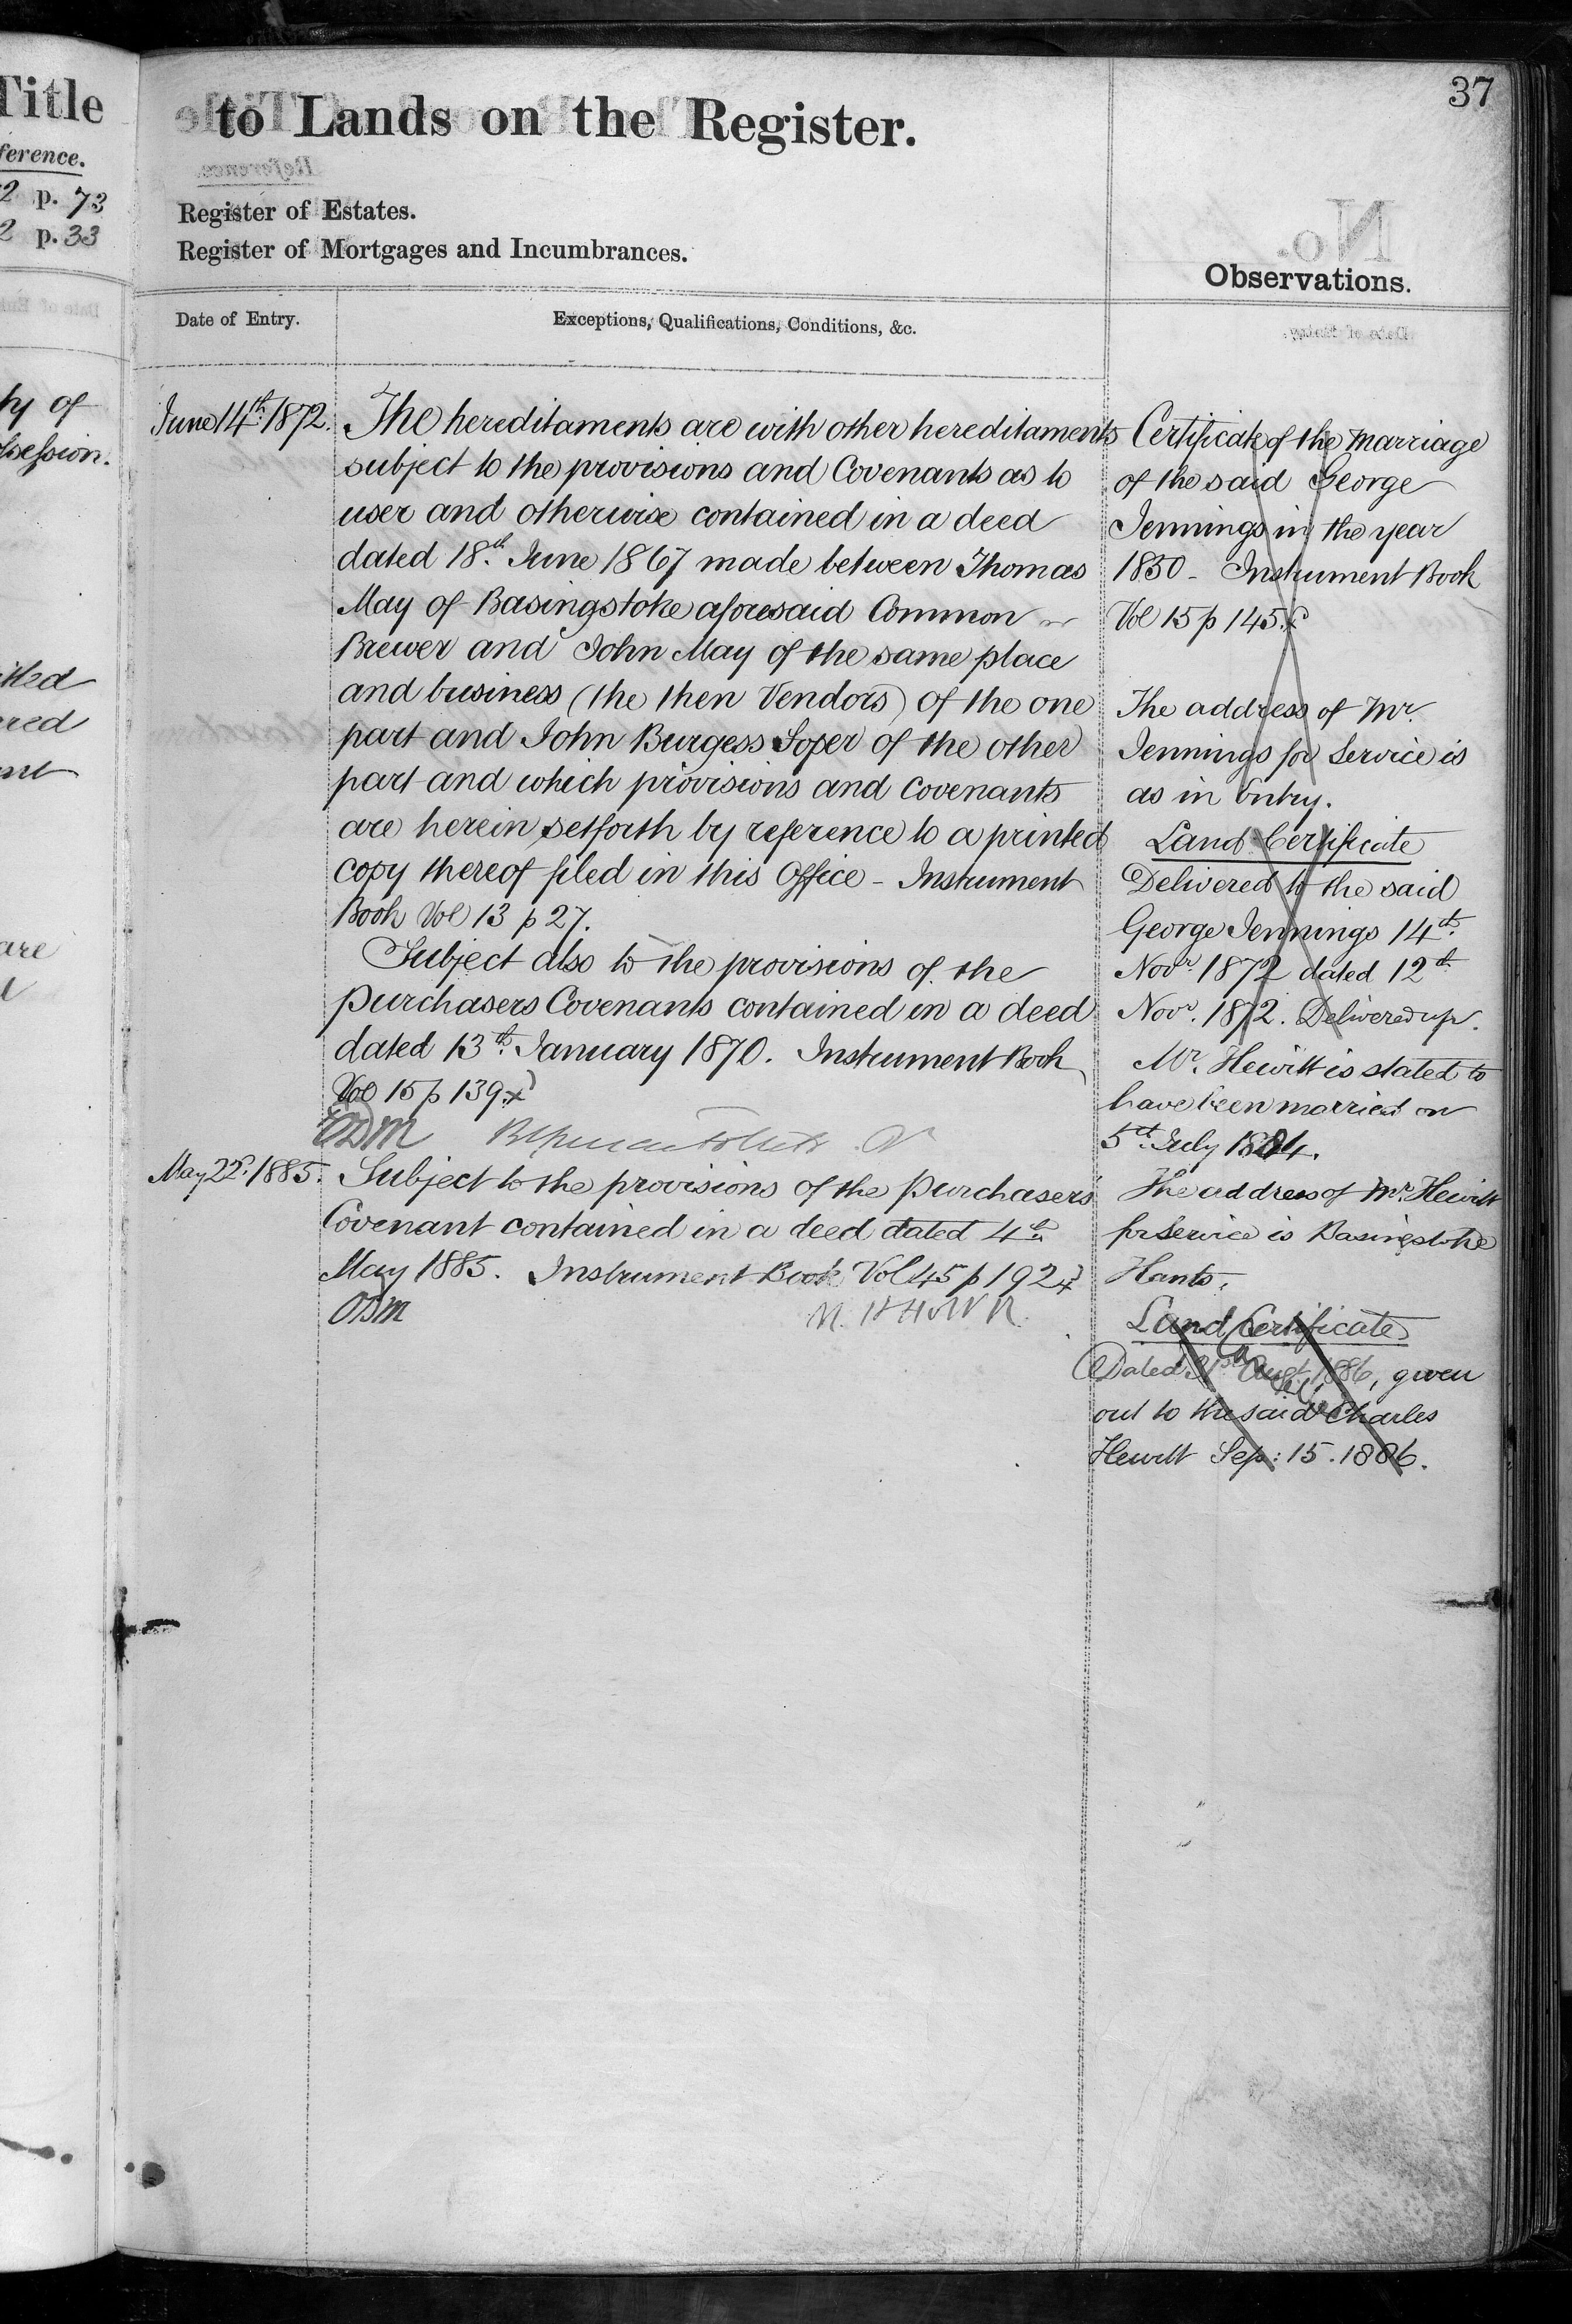 Title
ference.
2 p. 73
2 p. 33
ty of
ssession.
are
37
to Lands on the Register.
Register of Estates.
Register of Mortgages and Incumbrances.
Observations.
Date of Entry.
Exceptions, Qualifications, Conditions, &c.
June 14th. 1872.
The hereditaments are with other hereditaments
subject to the provisions and Covenants as to
user and otherwise contained in a deed
dated 18th. June 1867 made between Thomas
May of Basingstoke aforesaid Common
Brewer and John May of the same place
and business (the then Vendors) of the one
part and John Burgess Soper of the other
part and which provisions and covenants
are herein setforth by reference to a printed
copy thereof filed in this Office - Instrument
Book Vol 13 p 27.
Subject also to the provisions of the
purchasers Covenants contained in a deed
dated 13th. January 1870. Instrument Book
Vol 15 p 139.
ODM
May 22d. 1885.
Subject to the provisions of the purchasers'
Covenant contained in a deed dated 4th
May 1885. Instrument Book Vol 45 p 192
ODM
Certificate of the marriage
of the said George
Jennings in the year
1850 - Instrument Book
Vol 15 p 145.
The address of Mr.
Jennings for Service is
as in Entry.
Land Certificate
Delivered to the said
George Jennings 14th.
Novr. 1872 dated 12th.
Novr. 1872. Delivered up.
Mr. Hewitt is stated to
have been married on
5th. July 1884.
The address of Mr. Hewitt
for service is Basingstoke
Hants.
Land Certificate
Dated 31st Augt. 1886, given
out to the said Charles
Hewitt Sep: 15. 1886.